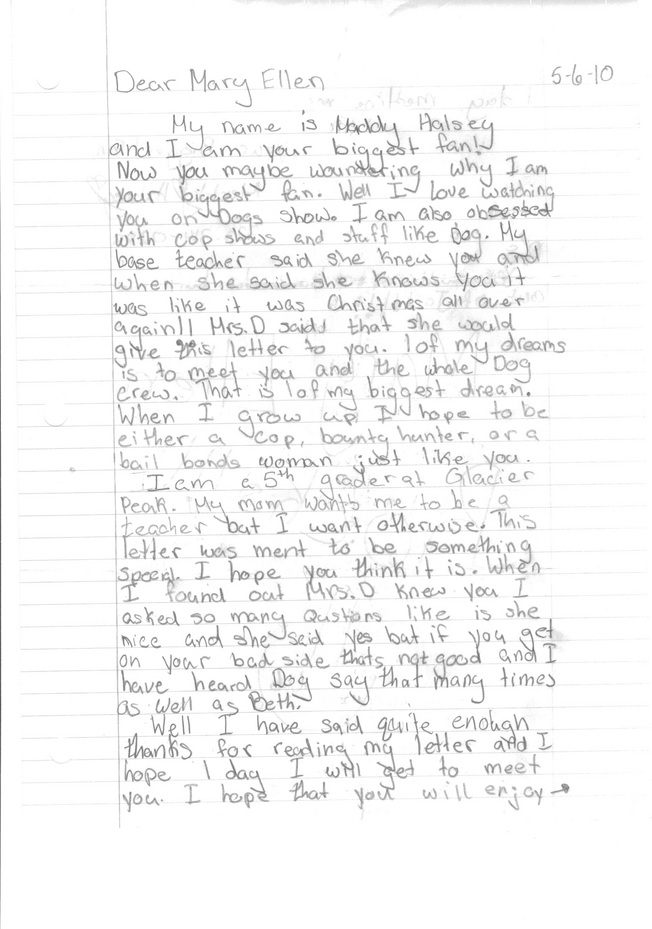 Dear Mary Ellen 5-6-10
My name is Maddy Halsey
and I am your biggest fan!
Now you maybe woundering why I am
your biggest fan. Well I love watching
you on Dogs show. I am also obsessed
with cop shows and stuff like Dog. My
base teacher said she knew you and
when she said she knows you it
was like it was Christmas all over
again!! Mrs. D said that she would
give this letter to you. 1 of my dreams
is to meet you and the whole Dog
crew. That is 1 of my biggest dream.
When I grow up I hope to be
either a cop, bounty hunter, or a
bail bonds woman just like you.
I am a 5th grader at Glacier
Peak. My mom wants me to be a
teacher but I want otherwise. This
letter was ment to be something
specal. I hope you think it is. When
I found out Mrs. D knew you I
asked so many Qustions like is she
nice and she said yes but if you get
on your bad side thats not good and I
have heard Dog say that many times
as well as Beth.
Well I have said quite enough
thanks for reading my letter and I
hope 1 day I will get to meet
you. I hope that you will enjoy →